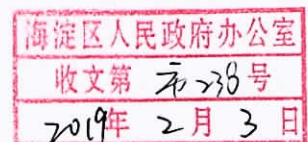 海淀区人民政府办公室
收文第 市238号
2019年 2月 3日